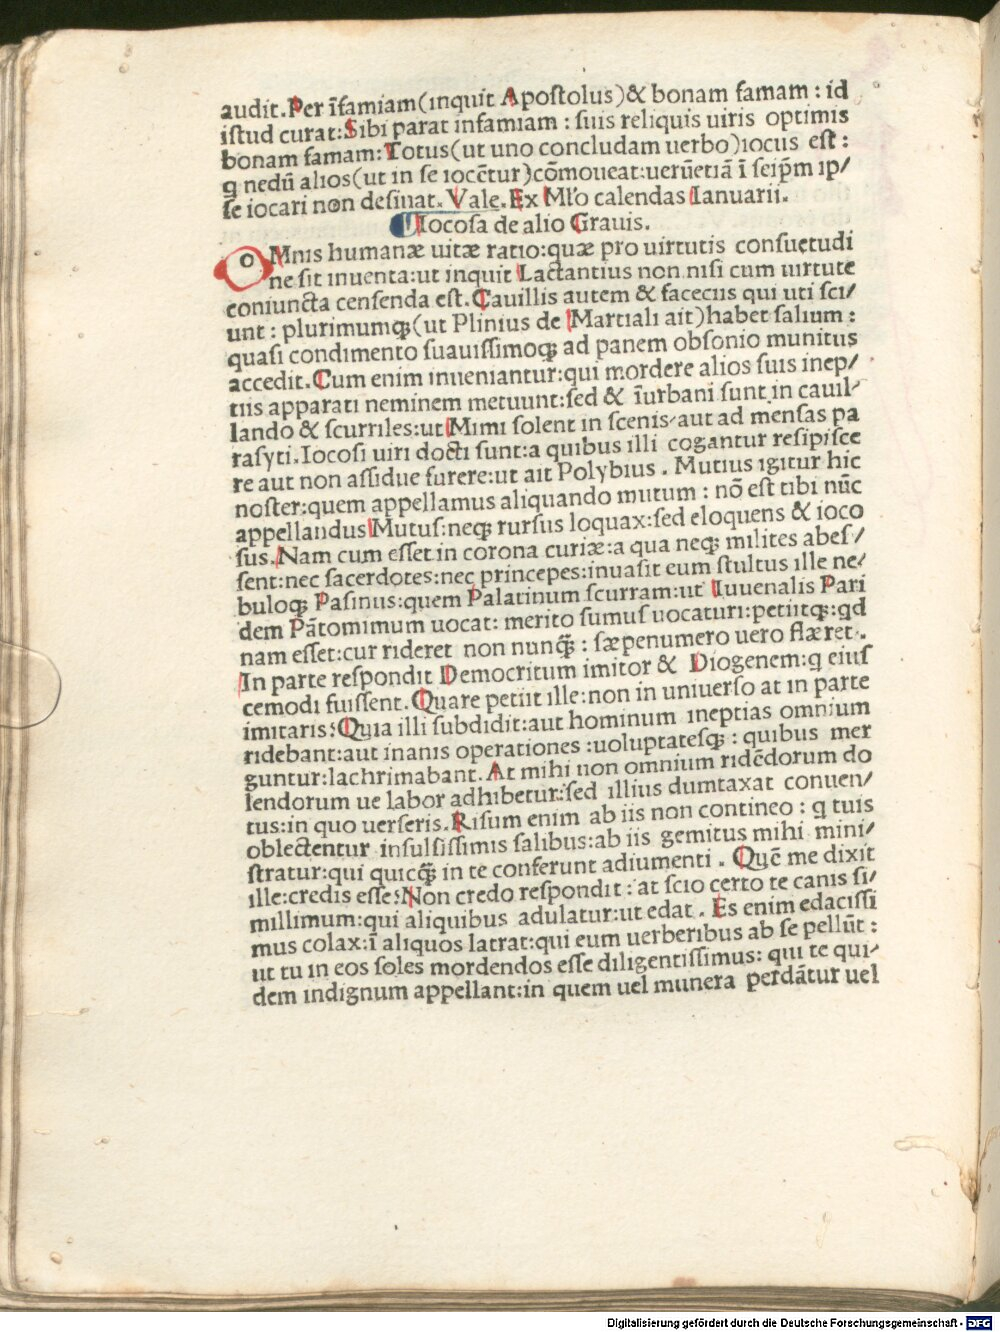 audit.Per īfamiam(inquit Apoſtolus)& bonam famam : id
iſtud curat:Sibi parat infamiam : ſuis reliquis uiris optimis
bonam famam:Totus(ut uno concludam uerbo)iocus eſt :
q nedū alios(ut in ſe iocētur)cōmoueat:uerūetiā ī ſeip̄m ip/
ſe iocari non deſinat. Vale. Ex Mło calendas Ianuarii.
Iocoſa de alio Grauis.
OMnis humanæ uitæ ratio:quæ pro uirtutis conſuetudi
ne ſit inuenta:ut inquit Lactantius non niſi cum uirtute
coniuncta cenſenda eſt. Cauillis autem & faceciis qui uti ſci/
unt : plurimumqꝫ(ut Plinius de Martiali ait)habet ſalium :
quaſi condimento ſuauiſſimoqꝫ ad panem obſonio munitus
accedit. Cum enim inueniantur:qui mordere alios ſuis inep/
tiis apparati neminem metuunt:ſed & īurbani ſunt in cauil/
lando & ſcurriles:ut Mimi ſolent in ſcenis/aut ad menſas pa
raſyti.Iocoſi uiri docti ſunt:a quibus illi cogantur reſipiſce
re aut non aſſidue furere:ut ait Polybius . Mutius igitur hic
noſter:quem appellamus aliquando mutum : nō eſt tibi nūc
appellandus Mutuſ:neqꝫ rurſus loquax:ſed eloquens & ioco
ſus. Nam cum eſſet in corona curiæ:a qua neqꝫ milites abeſ/
ſent:nec ſacerdotes:nec princepes:inuaſit eum ſtultus ille ne/
buloqꝫ Paſinus:quem Palatinum ſcurram:ut Iuuenalis Pari
dem Pātomimum uocat: merito ſumuſ uocaturi:petiitqꝫ:qd
nam eſſet:cur rideret non nunqꝫ̄ : ſæpenumero uero flæret .
In parte reſpondit Democritum imitor & Diogenem:q eiuſ
cemodi fuiſſent. Quare petiit ille:non in uniuerſo at in parte
imitaris? Quia illi ſubdidit:aut hominum ineptias omnium
ridebant:aut inanis operationes :uoluptateſqꝫ : quibus mer
guntur:lachrimabant. At mihi non omnium ridēdorum do
lendorum ue labor adhibetur:ſed illius dumtaxat conuen/
tus:in quo uerſeris. Riſum enim ab iis non contineo : q tuis
oblectentur inſulſiſſimis ſalibus:ab iis gemitus mihi mini/
ſtratur:qui quicqꝫ̄ in te conferunt adiumenti . Quē me dixit
ille:credis eſſe? Non credo reſpondit : at ſcio certo te canis ſi/
millimum:qui aliquibus adulatur:ut edat . Es enim edaciſſi
mus colax:ī aliquos latrat:qui eum uerberibus ab ſe pellūt :
ut tu in eos ſoles mordendos eſſe diligentiſſimus: qui te qui/
dem indignum appellant:in quem uel munera perdātur uel
Digitalisierung gefördert durch die Deutsche Forschungsgemeinschaft - DFG